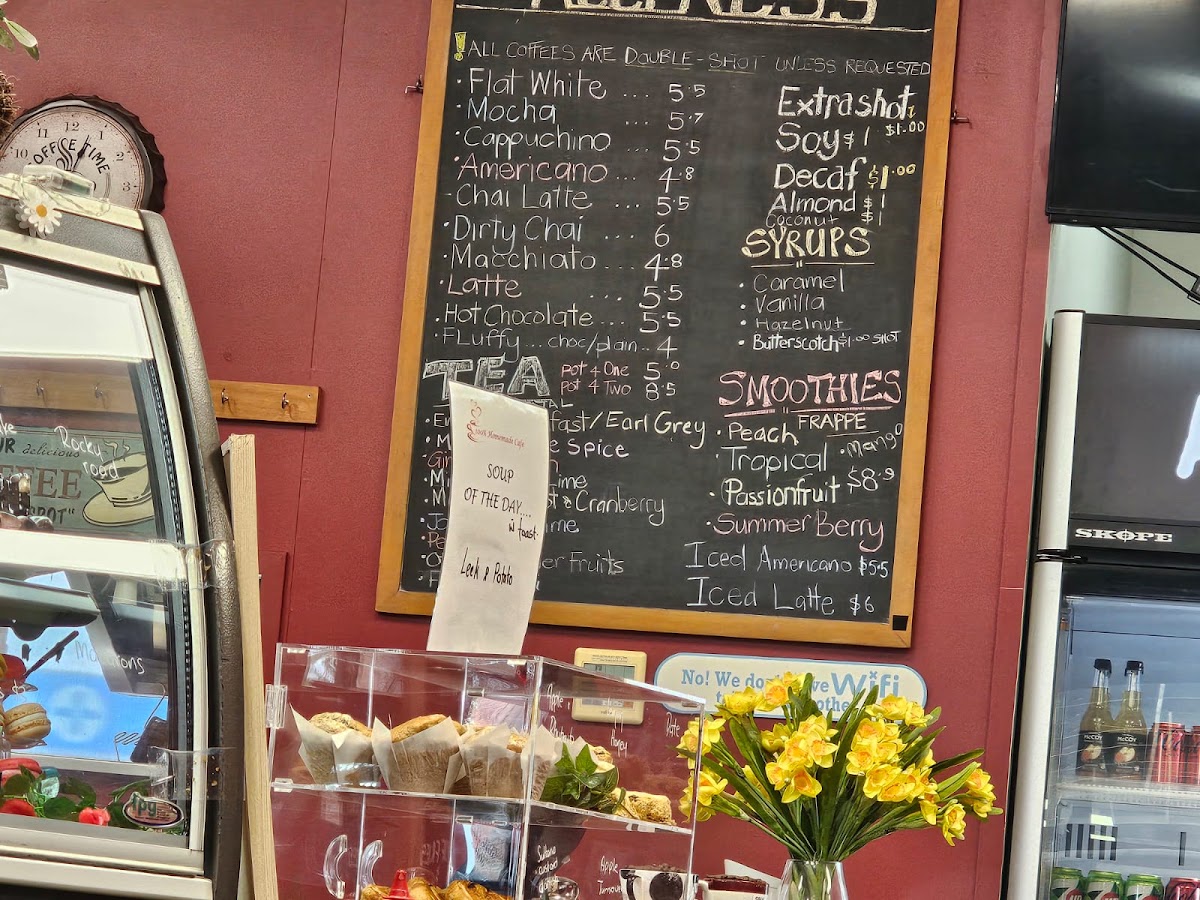 ALL COFFEES ARE DOUBLE-SHOT UNLESS REQUESTED
• Flat White ... 5.5
• Mocha ... 5.7
• Cappuchino ... 5.5
• Americano ... 4.8
• Chai Latte ... 5.5
• Dirty Chai ... 6
• Macchiato ... 4.8
• Latte ... 5.5
• Hot Chocolate ... 5.5
• FLuffy ... choc/plain .. 4
Extra shot $1.00
Soy $1
Decaf $1.00
Almond $1
Coconut $1
SYRUPS
• Caramel
• Vanilla
• Hazelnut
• Butterscotch $1.00 SHOT
TEA
Pot 4 One 5.0
Pot 4 Two 8.5
fast/Earl Grey
Spice
Cranberry
Fruits
SMOOTHIES
FRAPPE
• Peach • Mango
• Tropical
• Passionfruit $8.9
• Summer Berry
Iced Americano $5.5
Iced Latte $6
100% Homemade Cafe
SOUP
OF THE DAY....
toast.
Leek & Potato
OFFEE TIME
10 11 12 1 2 3
delicious
Rocky
road
No! We don't have Wifi
SKOPE
McCOY
McCOY
Apple
Turnover
Sultana
custard